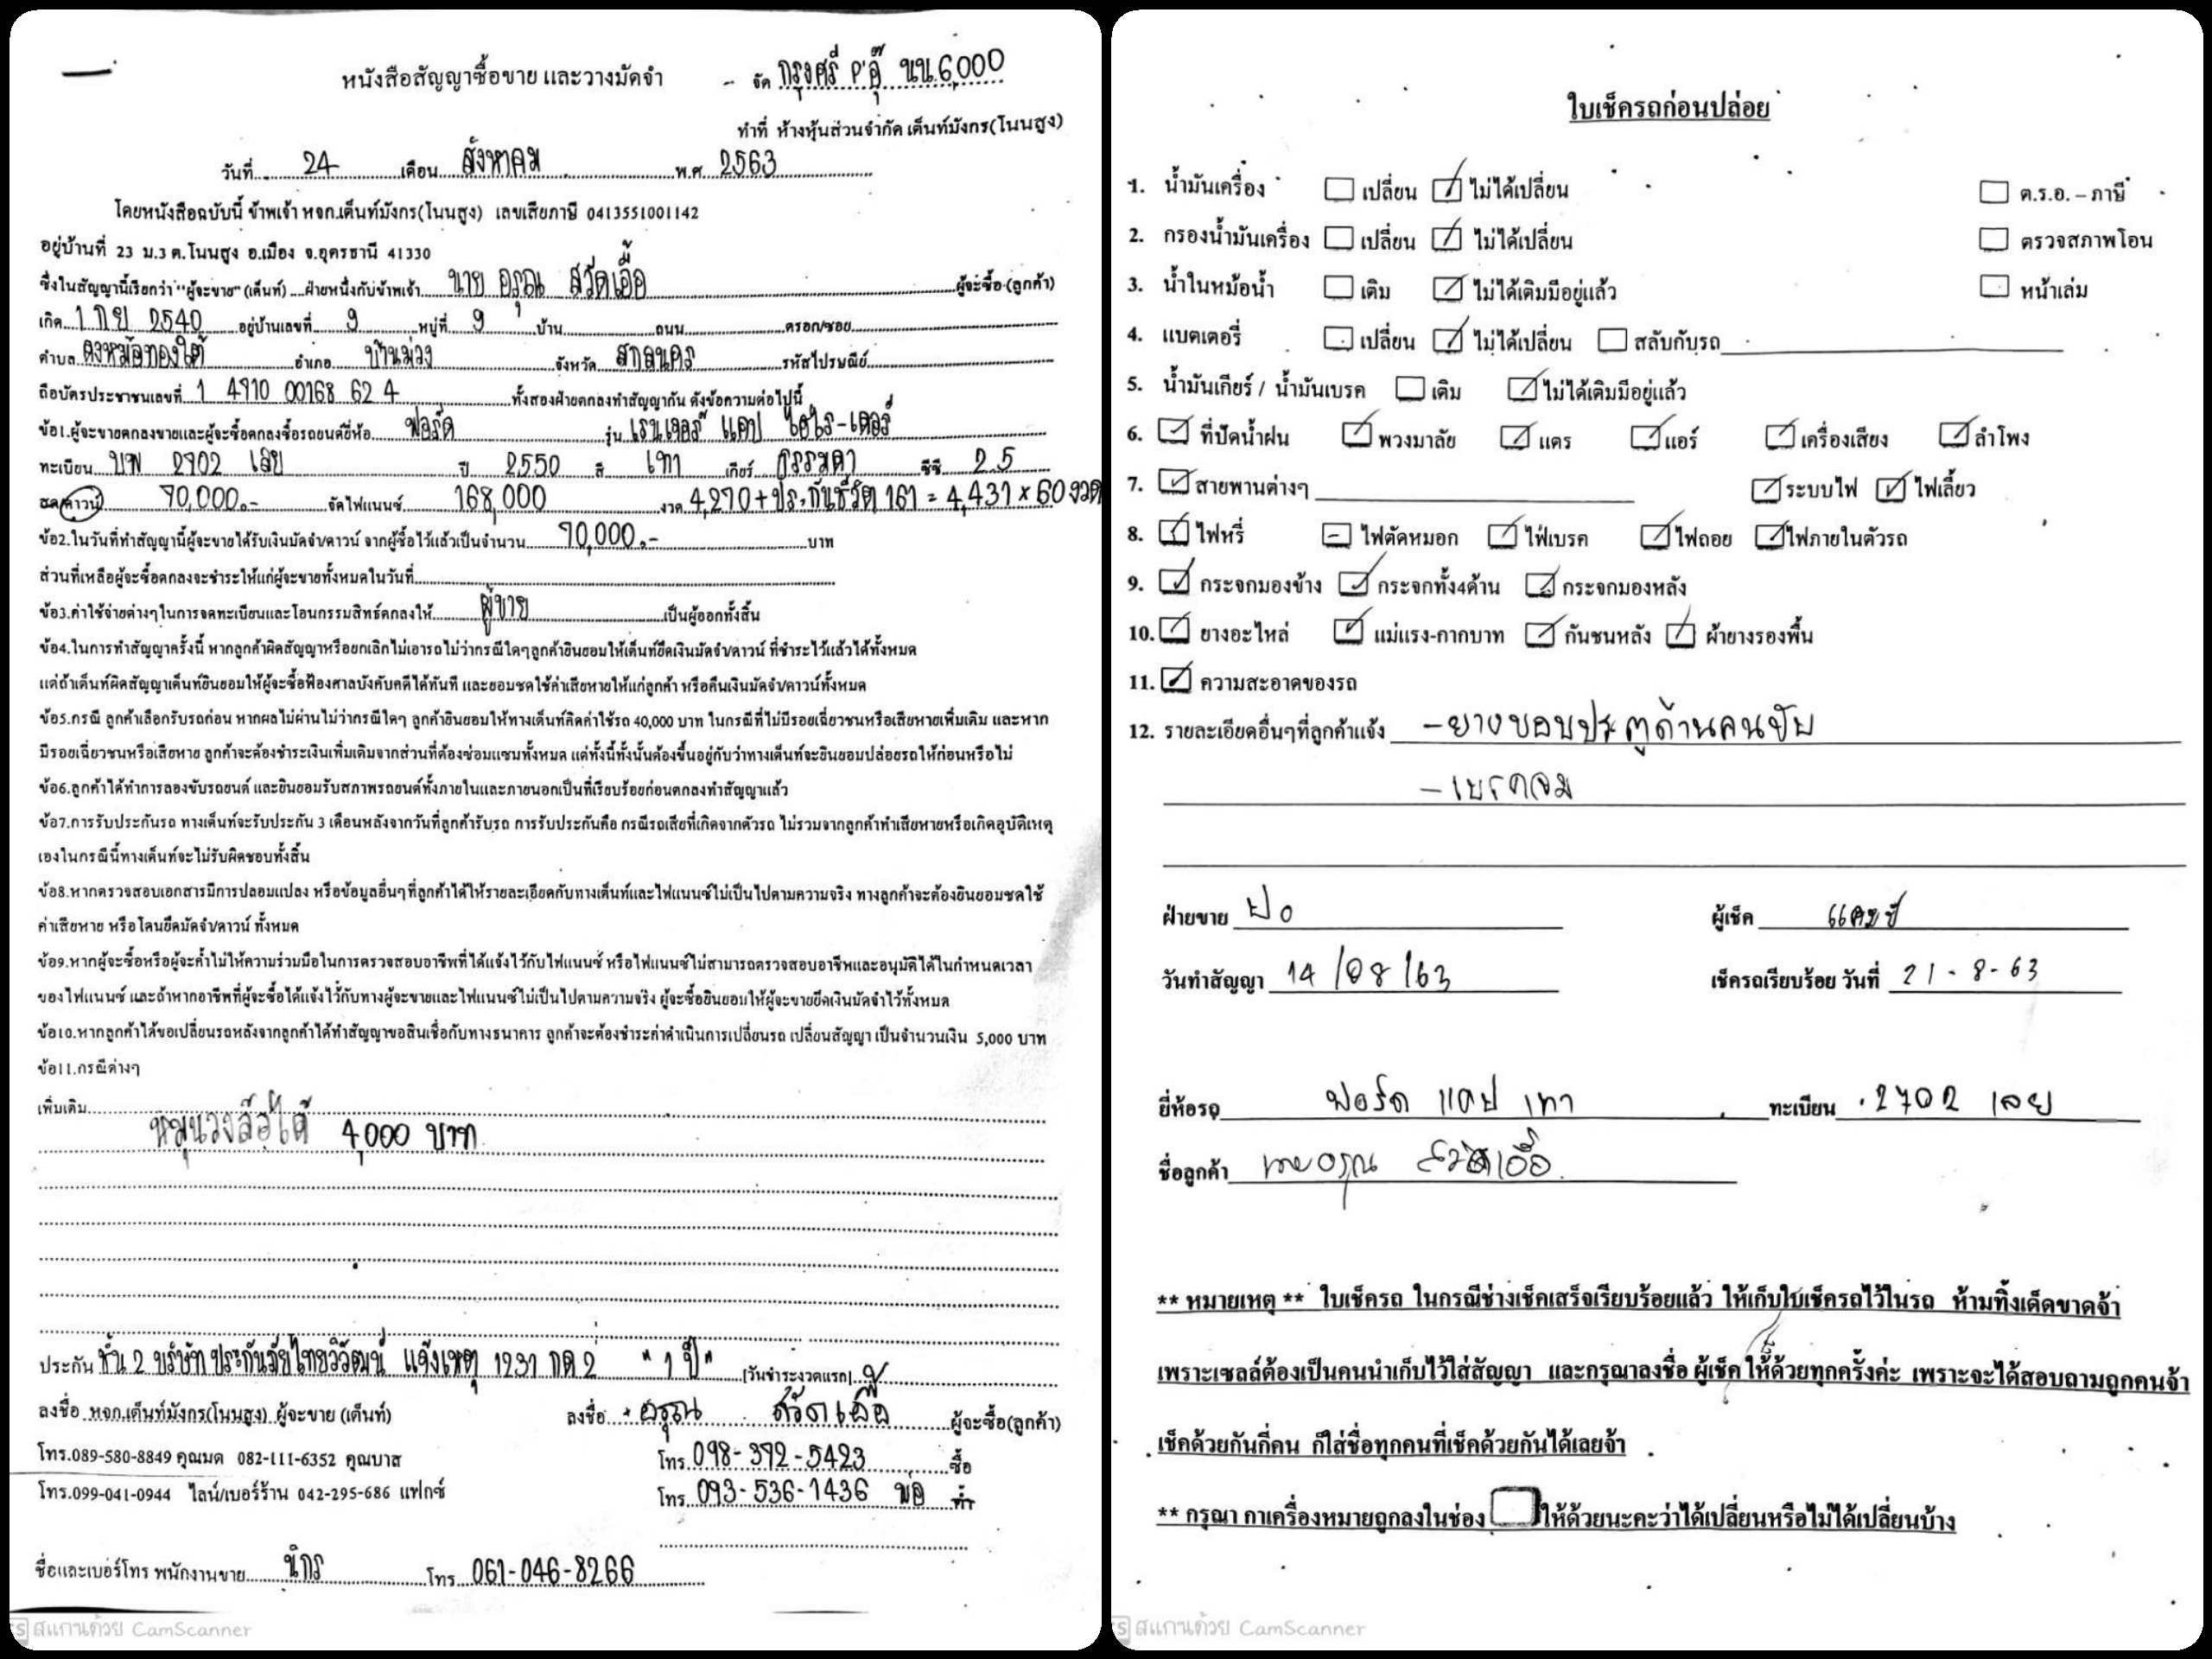 หนังสือสัญญาซื้อขาย และวางมัดจำ
- จัด กรุงศรี P'อุ๊ นน.6,000
ทำที่ ห้างหุ้นส่วนจำกัด เต็นท์มังกร(โนนสูง)
วันที่ 24 เดือน สิงหาคม พ.ศ. 2563
โดยหนังสือฉบับนี้ ข้าพเจ้า หจก.เต็นท์มังกร(โนนสูง) เลขเสียภาษี 0413551001142
อยู่บ้านที่ 23 ม.3 ต.โนนสูง อ.เมือง จ.อุดรธานี 41330
ซึ่งในสัญญานี้เรียกว่า "ผู้จะขาย" (เต็นท์) ฝ่ายหนึ่งกับข้าพเจ้า นาย อรุณ สวัดเอื้อ ผู้จะซื้อ (ลูกค้า)
เกิด 1 กย 2540 อยู่บ้านเลขที่ 9 หมู่ที่ 9 บ้าน ถนน ตรอก/ซอย
ตำบล ดงหม้อทองใต้ อำเภอ บ้านม่วง จังหวัด สกลนคร รหัสไปรษณีย์
ถือบัตรประชาชนเลขที่ 1 4710 00168 62 4 ทั้งสองฝ่ายตกลงทำสัญญากัน ดังข้อความต่อไปนี้
ข้อ1.ผู้จะขายตกลงขายและผู้จะซื้อตกลงซื้อรถยนต์ยี่ห้อ ฟอร์ด รุ่น เรนเจอร์ แคป ไฮไร-เดอร์
ทะเบียน บพ 2702 เลย ปี 2550 สี เทา เกียร์ ธรรมดา ซีซี 2.5
สด/ดาวน์ 70,000.- จัดไฟแนนซ์ 168,000 งวด 4,270 + ประกันชีวิต 161 = 4,431 x 60 งวด
ข้อ2.ในวันที่ทำสัญญานี้ผู้จะขายได้รับเงินมัดจำ/ดาวน์ จากผู้ซื้อไว้แล้วเป็นจำนวน 70,000.- บาท
ส่วนที่เหลือผู้จะซื้อตกลงจะชำระให้แก่ผู้จะขายทั้งหมดในวันที่
ข้อ3.ค่าใช้จ่ายต่างๆในการจดทะเบียนและโอนกรรมสิทธิ์ตกลงให้ ผู้ขาย เป็นผู้ออกทั้งสิ้น
ข้อ4.ในการทำสัญญาครั้งนี้ หากลูกค้าผิดสัญญาหรือยกเลิกไม่เอารถไม่ว่ากรณีใดๆลูกค้ายินยอมให้เต็นท์ยึดเงินมัดจำ/ดาวน์ ที่ชำระไว้แล้วได้ทั้งหมด
แต่ถ้าเต็นท์ผิดสัญญาเต็นท์ยินยอมให้ผู้จะซื้อฟ้องศาลบังคับคดีได้ทันที และยอมชดใช้ค่าเสียหายให้แก่ลูกค้า หรือคืนเงินมัดจำ/ดาวน์ทั้งหมด
ข้อ5.กรณี ลูกค้าเลือกรับรถก่อน หากผลไม่ผ่านไม่ว่ากรณีใดๆ ลูกค้ายินยอมให้ทางเต็นท์คิดค่าใช้รถ 40,000 บาท ในกรณีที่ไม่มีรอยเฉี่ยวชนหรือเสียหายเพิ่มเติม และหาก
มีรอยเฉี่ยวชนหรือเสียหาย ลูกค้าจะต้องชำระเงินเพิ่มเติมจากส่วนที่ต้องซ่อมแซมทั้งหมด แต่ทั้งนี้ทั้งนั้นต้องขึ้นอยู่กับว่าทางเต็นท์จะยินยอมปล่อยรถให้ก่อนหรือไม่
ข้อ6.ลูกค้าได้ทำการลองขับรถยนต์ และยินยอมรับสภาพรถยนต์ทั้งภายในและภายนอกเป็นที่เรียบร้อยก่อนตกลงทำสัญญาแล้ว
ข้อ7.การรับประกันรถ ทางเต็นท์จะรับประกัน 3 เดือนหลังจากวันที่ลูกค้ารับรถ การรับประกันคือ กรณีรถเสียที่เกิดจากตัวรถ ไม่รวมจากลูกค้าทำเสียหายหรือเกิดอุบัติเหตุ
เองในกรณีนี้ทางเต็นท์จะไม่รับผิดชอบทั้งสิ้น
ข้อ8.หากตรวจสอบเอกสารมีการปลอมแปลง หรือข้อมูลอื่นๆที่ลูกค้าได้ให้รายละเอียดกับทางเต็นท์และไฟแนนซ์ไม่เป็นไปตามความจริง ทางลูกค้าจะต้องยินยอมชดใช้
ค่าเสียหาย หรือโดนยึดมัดจำ/ดาวน์ ทั้งหมด
ข้อ9.หากผู้จะซื้อหรือผู้จะค้ำไม่ให้ความร่วมมือในการตรวจสอบอาชีพที่ได้แจ้งไว้กับไฟแนนซ์ หรือไฟแนนซ์ไม่สามารถตรวจสอบอาชีพและอนุมัติได้ในกำหนดเวลา
ของไฟแนนซ์ และถ้าหากอาชีพที่ผู้จะซื้อได้แจ้งไว้กับทางผู้จะขายและไฟแนนซ์ไม่เป็นไปตามความจริง ผู้จะซื้อยินยอมให้ผู้จะขายยึดเงินมัดจำไว้ทั้งหมด
ข้อ10.หากลูกค้าได้ขอเปลี่ยนรถหลังจากลูกค้าได้ทำสัญญาขอสินเชื่อกับทางธนาคาร ลูกค้าจะต้องชำระค่าดำเนินการเปลี่ยนรถ เปลี่ยนสัญญา เป็นจำนวนเงิน 5,000 บาท
ข้อ11.กรณีต่างๆ
เพิ่มเติม
หมุนวงล้อได้ 4,000 บาท
ประกัน ชั้น 2 บริษัท ประกันภัยไทยวิวัฒน์ แจ้งเหตุ 1231 กด 2 "1 ปี" [วันชำระงวดแรก]
ลงชื่อ หจก.เต็นท์มังกร(โนนสูง) ผู้จะขาย (เต็นท์) ลงชื่อ อรุณ สวัดเอื้อ ผู้จะซื้อ(ลูกค้า)
โทร.089-580-8849 คุณมด 082-111-6352 คุณบาส โทร. 098-392-5423 ซื้อ
โทร.099-041-0944 ไลน์/เบอร์ร้าน 042-295-686 แฟกซ์ โทร. 093-536-1436 พ่อ ค้ำ
ชื่อและเบอร์โทร พนักงานขาย นิกร โทร. 061-046-8266
CS สแกนด้วย CamScanner
ใบเช็ครถก่อนปล่อย
1. น้ำมันเครื่อง เปลี่ยน ไม่ได้เปลี่ยน ต.ร.อ. – ภาษี
2. กรองน้ำมันเครื่อง เปลี่ยน ไม่ได้เปลี่ยน ตรวจสภาพโอน
3. น้ำในหม้อน้ำ เติม ไม่ได้เติมมีอยู่แล้ว หน้าเล่ม
4. แบตเตอรี่ เปลี่ยน ไม่ได้เปลี่ยน สลับกับรถ
5. น้ำมันเกียร์ / น้ำมันเบรค เติม ไม่ได้เติมมีอยู่แล้ว
6. ที่ปัดน้ำฝน พวงมาลัย แตร แอร์ เครื่องเสียง ลำโพง
7. สายพานต่างๆ ระบบไฟ ไฟเลี้ยว
8. ไฟหรี่ ไฟตัดหมอก ไฟเบรค ไฟถอย ไฟภายในตัวรถ
9. กระจกมองข้าง กระจกทั้ง4ด้าน กระจกมองหลัง
10. ยางอะไหล่ แม่แรง-กากบาท กันชนหลัง ผ้ายางรองพื้น
11. ความสะอาดของรถ
12. รายละเอียดอื่นๆที่ลูกค้าแจ้ง - ยางขอบประตูด้านคนขับ
- เบรคจม
ฝ่ายขาย ผู้เช็ค
วันทำสัญญา 14/08/63 เช็ครถเรียบร้อย วันที่ 21-8-63
ยี่ห้อรถ ฟอร์ด แคป เทา ทะเบียน 2702 เลย
ชื่อลูกค้า นายอรุณ สวัดเอื้อ
** หมายเหตุ ** ใบเช็ครถ ในกรณีช่างเช็คเสร็จเรียบร้อยแล้ว ให้เก็บใบเช็ครถไว้ในรถ ห้ามทิ้งเด็ดขาดจ้า
เพราะเซลล์ต้องเป็นคนนำเก็บไว้ใส่สัญญา และกรุณาลงชื่อ ผู้เช็ค ให้ด้วยทุกครั้งค่ะ เพราะจะได้สอบถามถูกคนจ้า
เช็คด้วยกันกี่คน ก็ใส่ชื่อทุกคนที่เช็คด้วยกันได้เลยจ้า
** กรุณา กาเครื่องหมายถูกลงในช่อง ให้ด้วยนะคะว่าได้เปลี่ยนหรือไม่ได้เปลี่ยนบ้าง
CS สแกนด้วย CamScanner